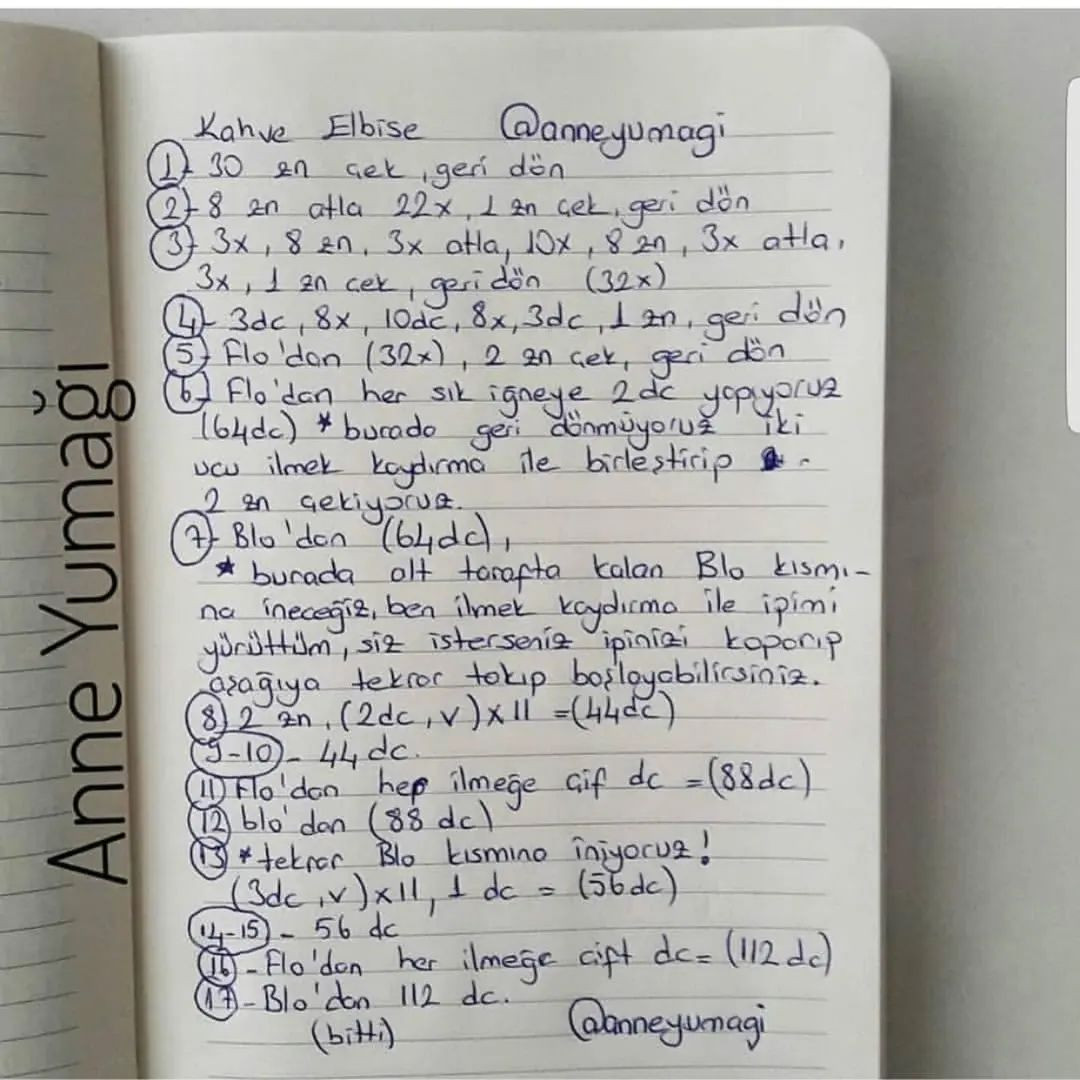 Kahve Elbise @anneyumagi
1- 30 zn çek, geri dön
2- 8 zn atla 22x, 1 zn çek, geri dön
3- 3x, 8 zn, 3x atla, 10x, 8 zn, 3x atla,
3x, 1 zn çek, geri dön (32x)
4- 3dc, 8x, 10dc, 8x, 3dc, 1 zn, geri dön
5- Flo'dan (32x), 2 zn çek, geri dön
6- Flo'dan her sık iğneye 2dc yapıyoruz
(64dc) * burada geri dönmüyoruz iki
ucu ilmek kaydırma ile birleştirip
2 zn çekiyoruz.
7- Blo'dan (64dc),
* burada alt tarafta kalan Blo kısmı-
na ineceğiz, ben ilmek kaydırma ile ipimi
yürüttüm, siz isterseniz ipinizi koparıp
aşağıya tekrar takıp başlayabilirsiniz.
8) 2 zn, (2dc, v)x11 =(44dc)
9-10)- 44 dc.
11) Flo'dan hep ilmeğe çif dc =(88dc)
12) blo'dan (88 dc)
13) * tekrar Blo kısmına iniyoruz!
(3dc, v)x11, 1 dc = (56dc)
14-15)- 56 dc
16- Flo'dan her ilmeğe çift dc= (112 dc)
17- Blo'dan 112 dc.
(bitti) @anneyumagi
Anne Yumağı